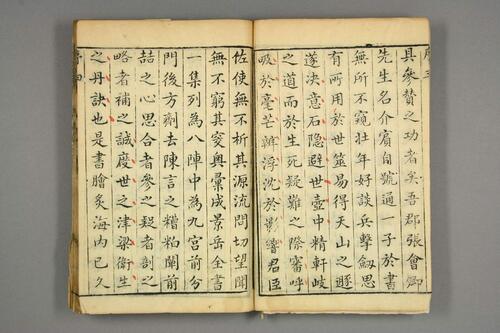 序三
具參贊之功者矣吾郡張會卿
先生名介賓自號通一子於書
無所不窺壯年好談兵擊劒思
有所用於世筮易得天山之遯
遂決意石隱避世壺中精軒岐
之道而於生死疑難之際審呼
吸於毫芒辨浮沈於影響君臣
佐使無不析其源流問切望聞
無不窮其突奧彙成景岳全書
一集列為八陣中為九宮前分
門後方劑去陳言之糟粕闡前
喆之心思合者參之疑者剖之
略者補之誠度世之津梁衛生
之丹訣也是書膾炙海內已久
序四